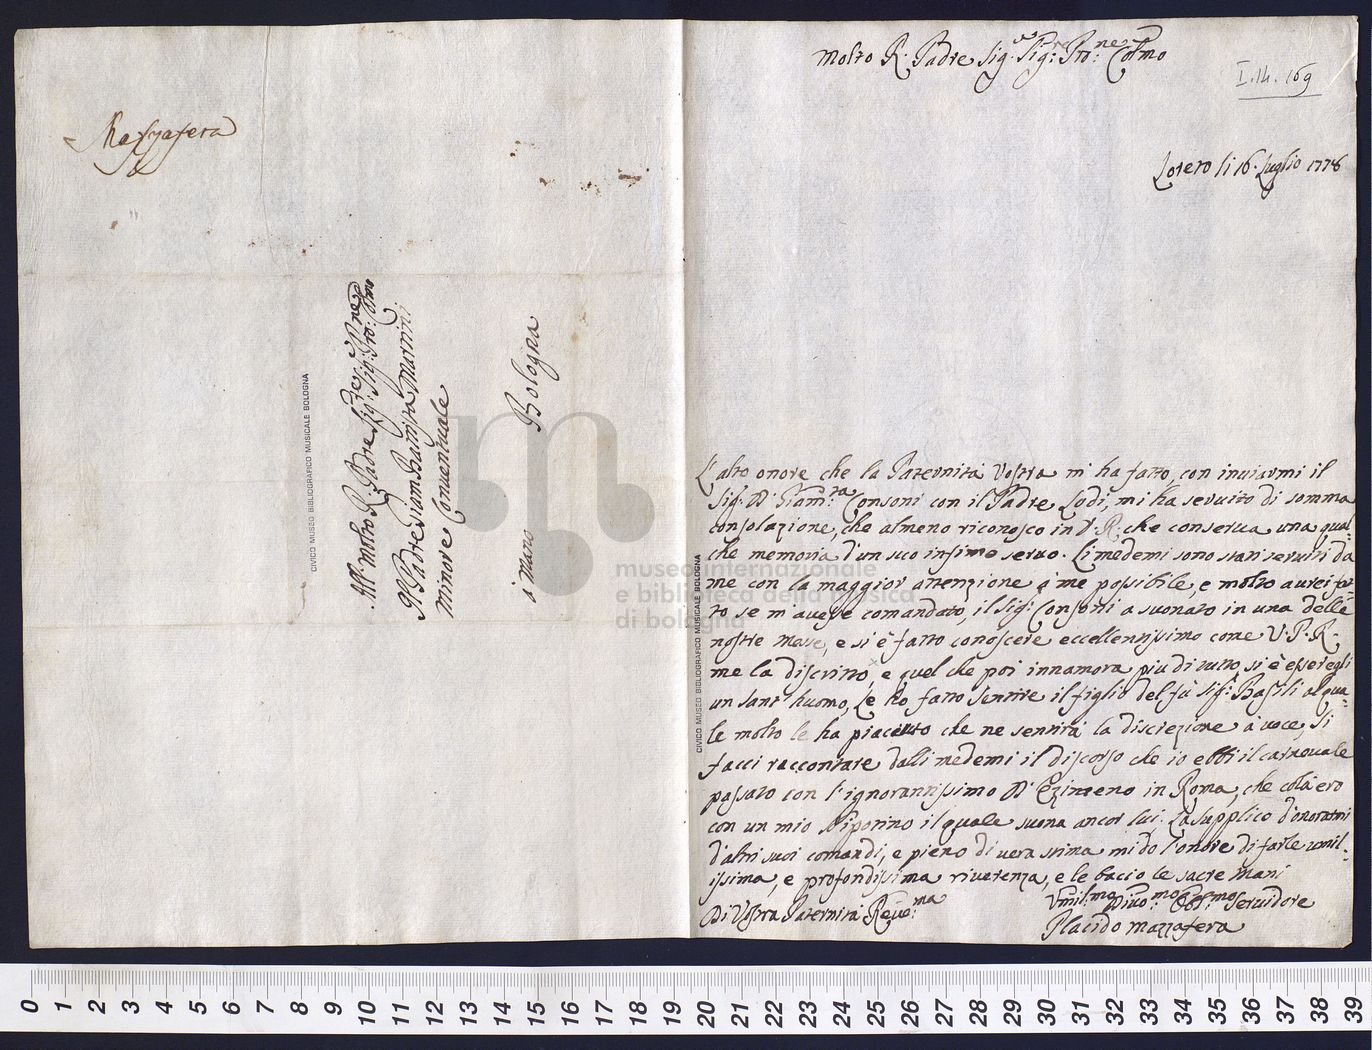 Mazzafera
All. Molto R. Padre Sig.re Sig: Pro:ne Colmo
Il Padre Giam Battista Martini
Minore Conventuale
à mano Bologna
CIVICO MUSEO BIBLIOGRAFICO MUSICALE BOLOGNA
Molto R. Padre Sig.re Sig: Pro:ne Colmo
I.14.169
Loreto li 16. Luglio 1778
L'alto onore che la Paternità Vostra mi ha fatto, con inviarmi il
Sig: D. Giam:ta Consoni con il Padre Lodi, mi ha servito di somma
consolazione, che almeno riconosco in V. R. che conserva una qual
che memoria d'un suo infimo servo. Li medemi sono stati serviti da
me con la maggior attenzione à me possibile, e molto avrei fat-
to se m'avesse comandato, il Sig: Consoni a suonato in una delle
nostre Messe, e si è fatto conoscere eccellentissimo come V. P. R.
me la discritto, e quel che poi innamora più di tutto, si è esser egli
un sant'huomo, Le ho fatto sentire il figlio del fù Sig: Basili al qua-
le molto le ha piaciuto che ne sentirà la discrezione à voce, Si
facci raccontare dalli medemi il discorso che io ebbi il carnovale
passato con l'ignorantissimo D. Eximeno in Roma, che colà ero
con un mio Nipotino il quale suona ancor lui. La supplico d'onorarmi
d'altri suoi comandi, e pieno di vera stima mi do l'onore di farle umil-
issima, e profondissima riverenza, e le bacio le sacre Mani
Di Vostra Paternità Reve:ma
Umil:mo Divo:mo Obb:mo Servidore
Placido Mazzafera
CIVICO MUSEO BIBLIOGRAFICO MUSICALE BOLOGNA
museo internazionale
e biblioteca della musica
di bologna
0 1 2 3 4 5 6 7 8 9 10 11 12 13 14 15 16 17 18 19 20 21 22 23 24 25 26 27 28 29 30 31 32 33 34 35 36 37 38 39